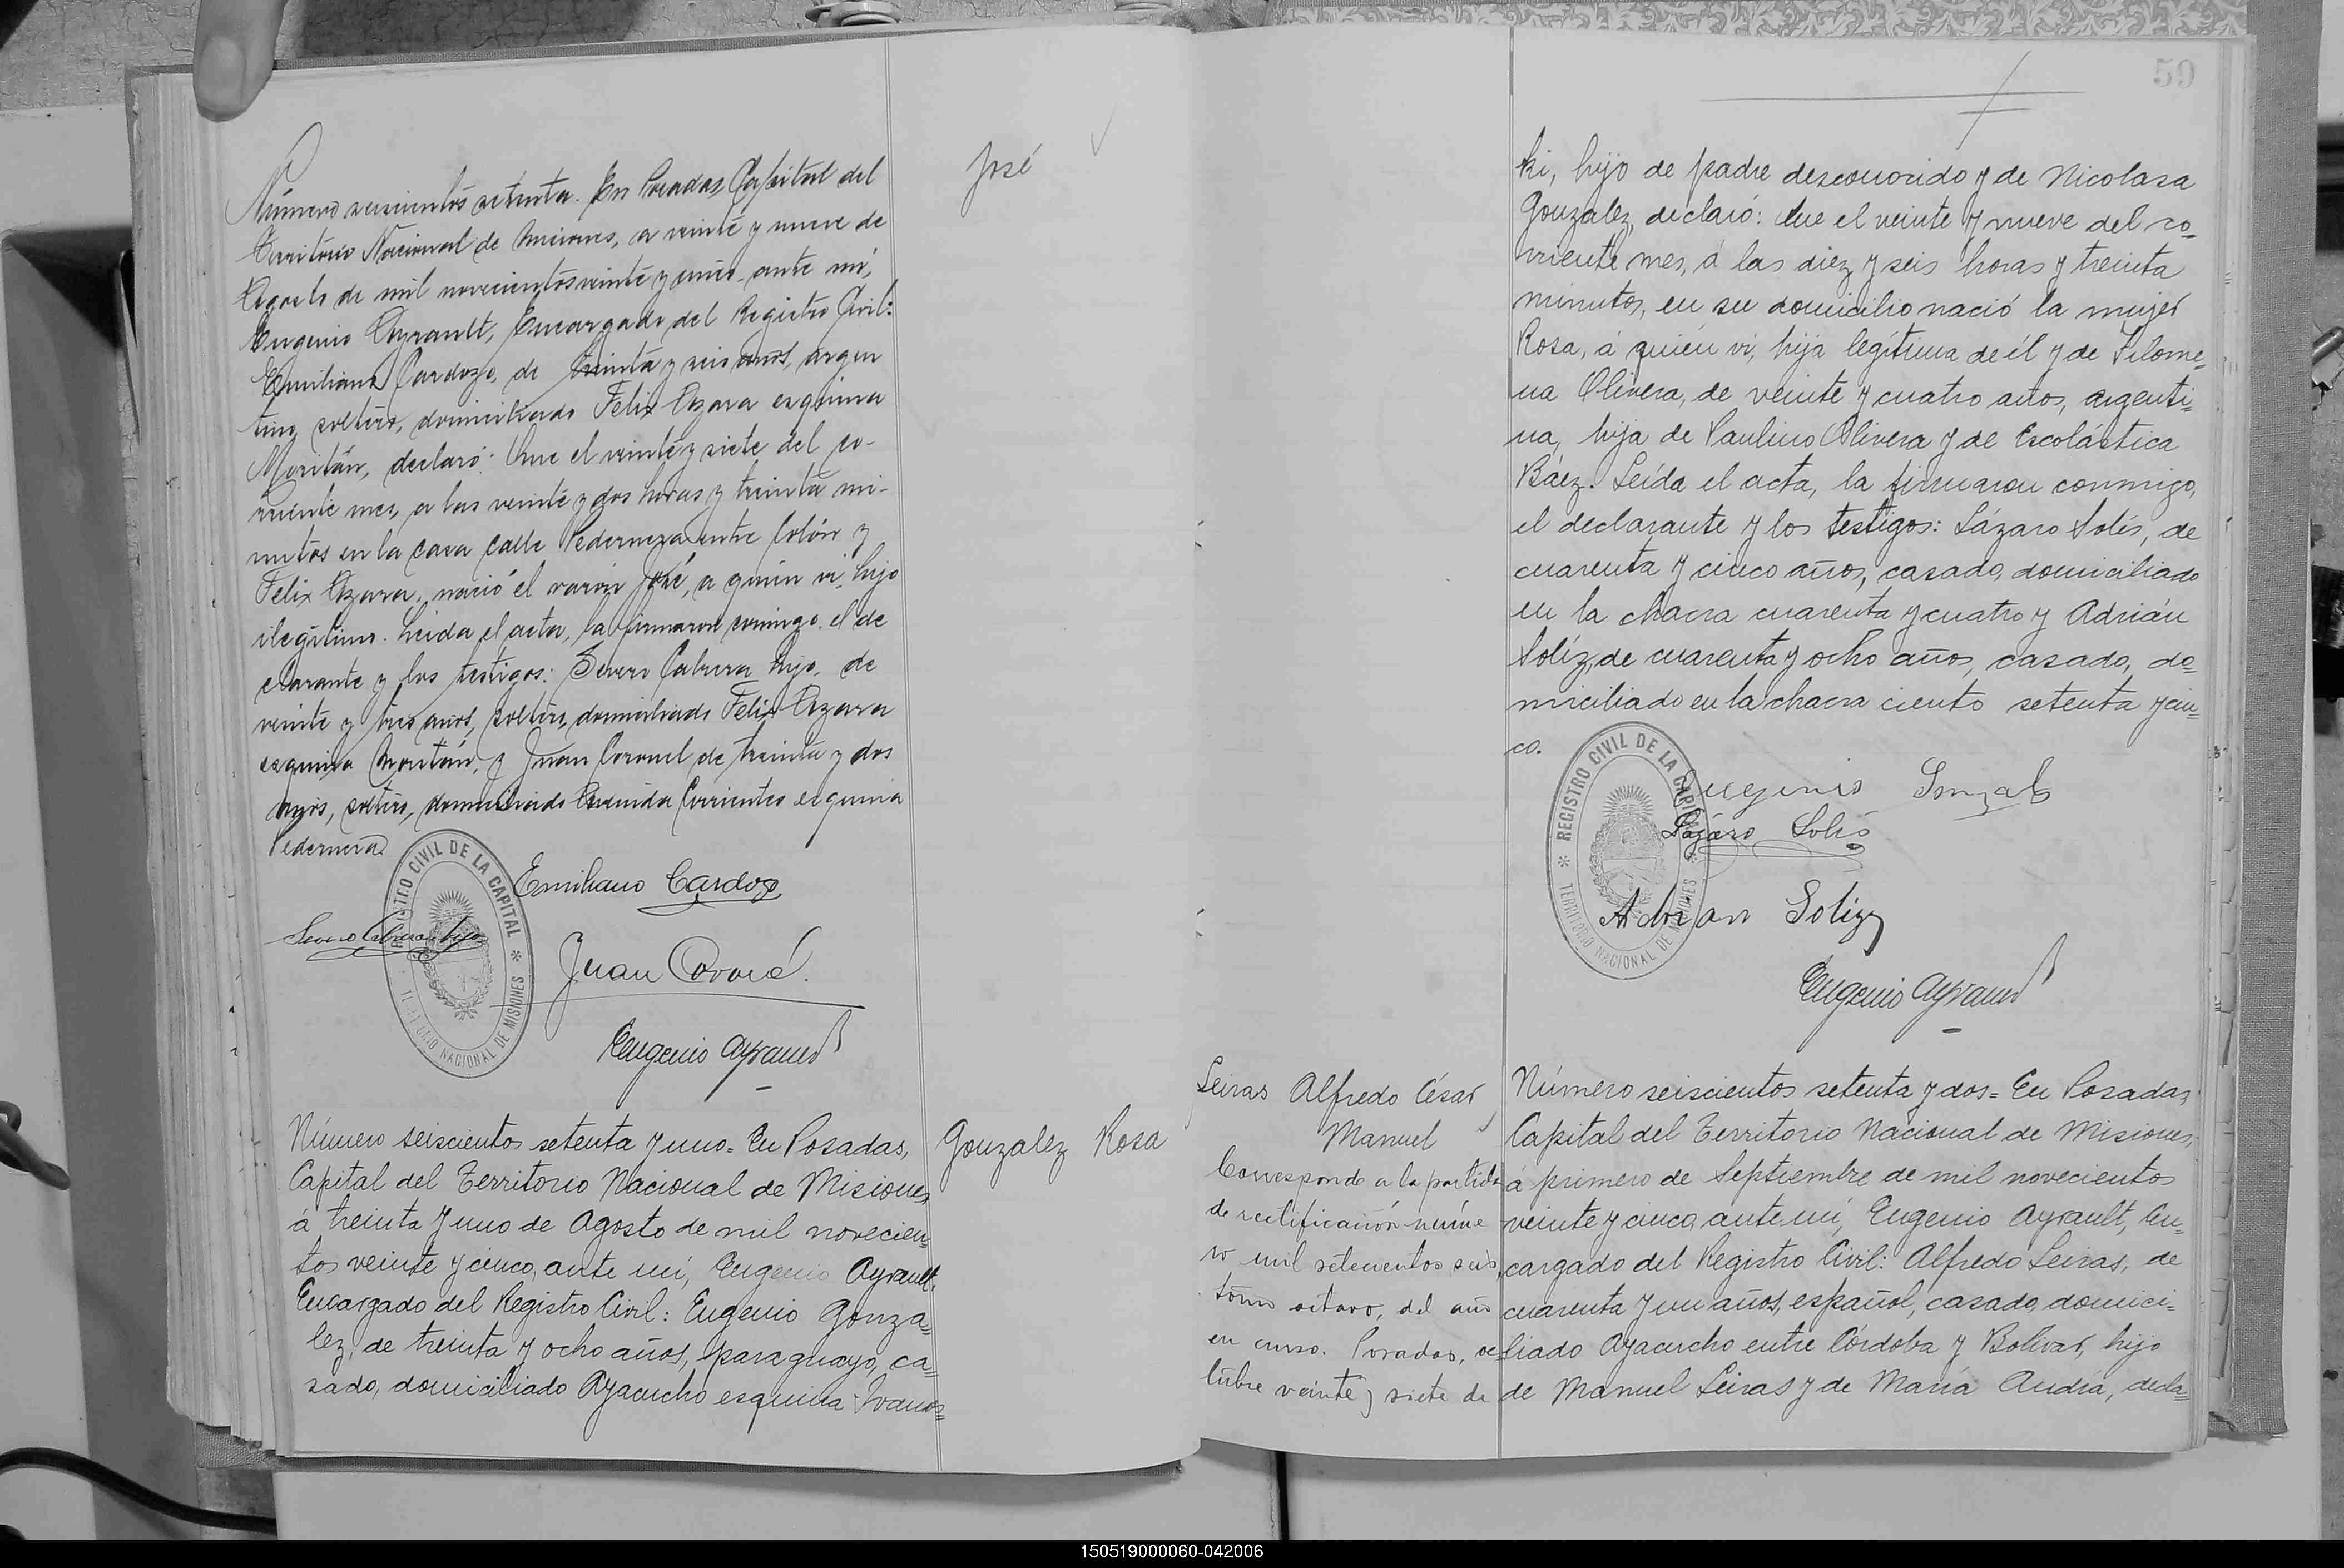 José
Número seiscientos setenta. En Posadas, Capital del
Territorio Nacional de Misiones, a veinte y nueve de
Agosto de mil novecientos veinte y cinco, ante mí,
Eugenio Ayrault, Encargado del Registro Civil:
Emiliano Cardozo, de treinta y seis años, argen
tino, soltero, domiciliado Felix Azara esquina
declaró: Que el veinte y siete del co-
rriente mes, a las veinte y dos horas y treinta mi-
nutos en la casa calle Pedernera entre Colón y
Felix Azara, nació el varón José, a quien vi, hijo
ilegítimo. Leida el acta, la firmaron conmigo, el de
clarante y los testigos: Severo Cabrera hijo, de
veinte y tres años, soltero, domiciliado Felix Azara
esquina y Juan Coronel de treinta y dos
años, soltero, domiciliado Avenida Corrientes esquina
Pedernera
REGISTRO CIVIL DE LA CAPITAL
TERRITORIO NACIONAL DE MISIONES
Emiliano Cardozo
Severo Cabrera hijo
Juan
Eugenio Ayrault
Gonzalez Rosa
Número seiscientos setenta y uno = En Posadas,
Capital del Territorio Nacional de Misiones,
á treinta y uno de Agosto de mil novecien=
tos veinte y cinco, ante mí, Eugenio Ayrault,
Encargado del Registro Civil: Eugenio Gonza=
lez, de treinta y ocho años, paraguayo, ca=
sado, domiciliado Ayacucho esquina Ivanos=
59
ki, hijo de padre desconocido y de Nicolasa
Gonzalez, declaró: Que el veinte y nueve del co=
rriente mes, á las diez y seis horas y treinta
minutos, en su domicilio nació la mujer
Rosa, á quién vi, hija legítima de él y de Filome=
na Olivera, de veinte y cuatro años, argenti=
na, hija de Paulino Olivera y de Escolástica
Báez. Leída el acta, la firmaron conmigo,
el declarante y los testigos: Lázaro Solís, de
cuarenta y cinco años, casado, domiciliado
en la chacra cuarenta y cuatro y Adrián
Solíz, de cuarenta y ocho años, casado, do=
miciliado en la chacra ciento setenta y cin=
co.
REGISTRO CIVIL DE LA CAPITAL
TERRITORIO NACIONAL DE MISIONES
Eugenio Gonzalez
Lázaro Solis
Adrian Soliz
Eugenio Ayrault
Leiras Alfredo César
Manuel
Corresponde a la partida
de rectificación núme
ro mil setecientos seis,
tomo octavo, del año
en curso. Posadas, oc
tubre veinte y siete de
Número seiscientos setenta y dos = En Posadas,
Capital del Territorio Nacional de Misiones,
á primero de Septiembre de mil novecientos
veinte y cinco, ante mí, Eugenio Ayrault, En=
cargado del Registro Civil: Alfredo Leiras, de
cuarenta y un años, español, casado, domici=
liado Ayacucho entre Córdoba y Bolívar, hijo
de Manuel Leiras y de María Andía, decla=
150519000060-042006